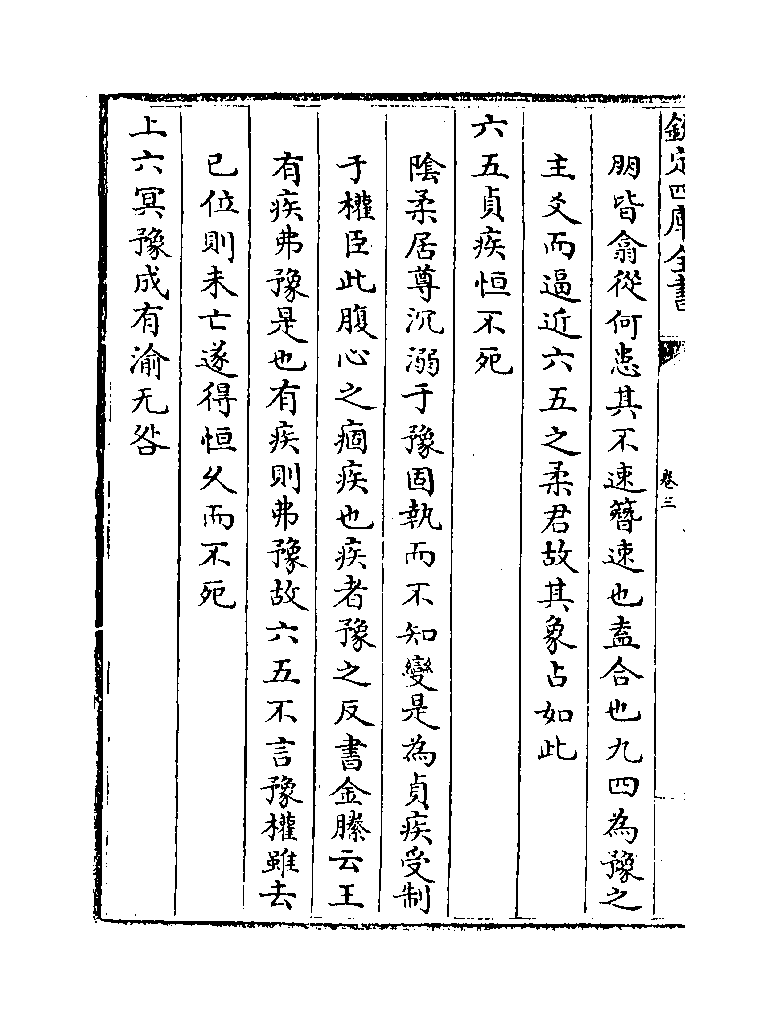 欽定四庫全書
卷三
朋皆翕從何患其不速簪速也盍合也九四為豫之
主爻而逼近六五之柔君故其象占如此
六五貞疾恒不死
陰柔居尊沉溺于豫固執而不知變是為貞疾受制
于權臣此腹心之痼疾也疾者豫之反書金縢云王
有疾弗豫是也有疾則弗豫故六五不言豫權雖去
已位則未亡遂得恒久而不死
上六冥豫成有渝无咎